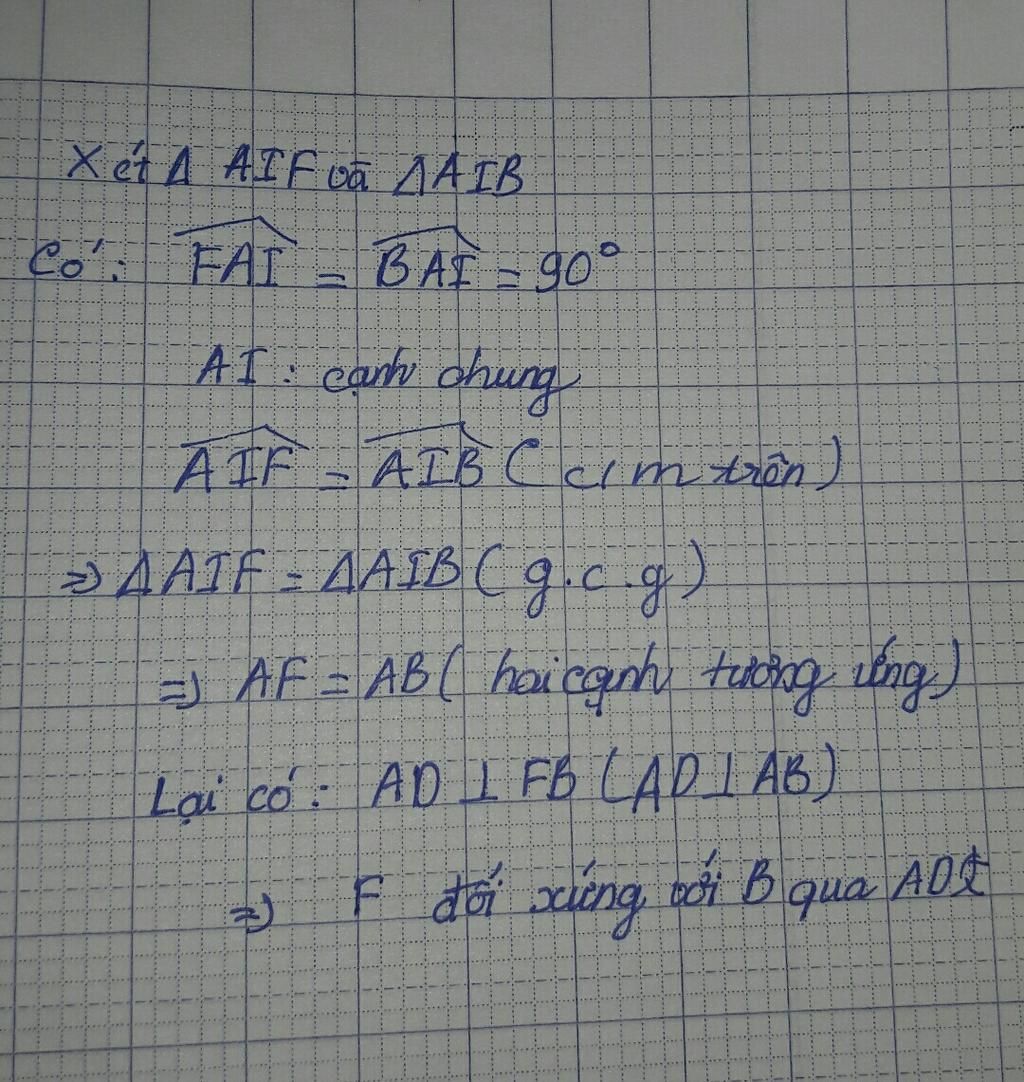 Xét Δ AIF và ΔAIB
Có: FAI = BAI = 90°
AI : cạnh chung
AIF = AIB (c/m trên)
=> ΔAIF = ΔAIB (g.c.g)
=> AF = AB (hai cạnh tương ứng)
Lại có: AD ⊥ FB (AD ⊥ AB)
=> F đối xứng với B qua AD